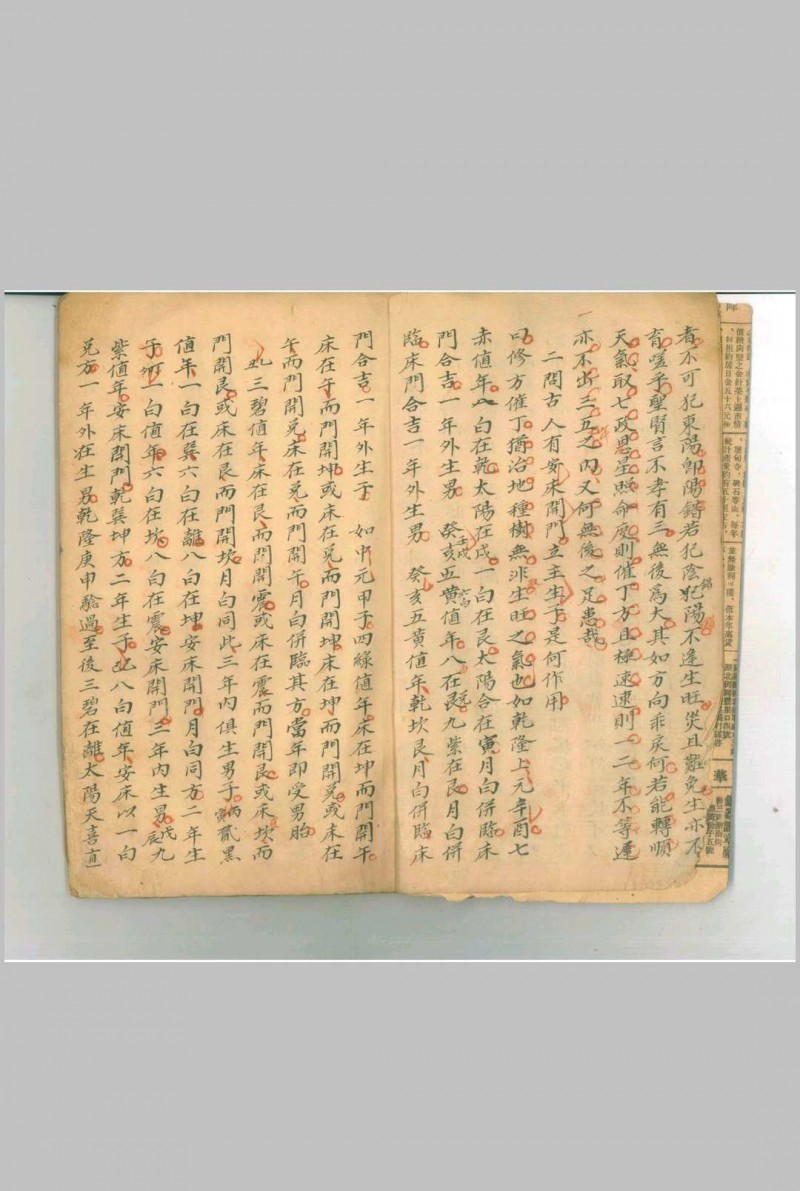 者不可犯東陽卽陽錯若犯陰犯陽不逢生旺災且難免生亦不
錯
育嗟乎聖賢言不孝有三無後爲大其如方向乖戾何若能轉順
天氣取七政恩星照命度則催丁方且極速速則一二年不等遲
亦不出三五之內又何無後之足患哉
二問古人有安床開門立主生子是何作用
曰修方催丁猶治地種樹無非生旺之氣也如乾隆上元辛酉七
赤值年八白在乾太陽在戌一白在艮太陽合在寅月白併臨床
門合吉一年外生男 癸亥五黃值年八在艮九紫在艮月白併
壬戌
臨床門合吉一年外生男 癸亥五黃值年乾坎艮月白併臨床
門合吉一年外生子 如中元甲子四綠值年床在坤而門開午
床在午而門開坤或床在兌而門開坤床在坤而門開兌或床在
午而門開兌床在兌而門開午月白併臨其方當年即受男胎
三碧值年床在艮而門開震或床在震而門開艮或床坎而
門開艮或床在艮而門開坎月白同此三年內俱生男子丙貳黑
值年一白在巽六白在離八白在坤安床開門月白同方二年生
子 一白值年六白在坎八白在震安床開門三年內生男戊九
辰
紫值年安床開門乾巽坤方二年生子 八白值年安床以一白
兌方一年外在生男乾隆庚申驗過至後三碧在離太陽天喜直
華一